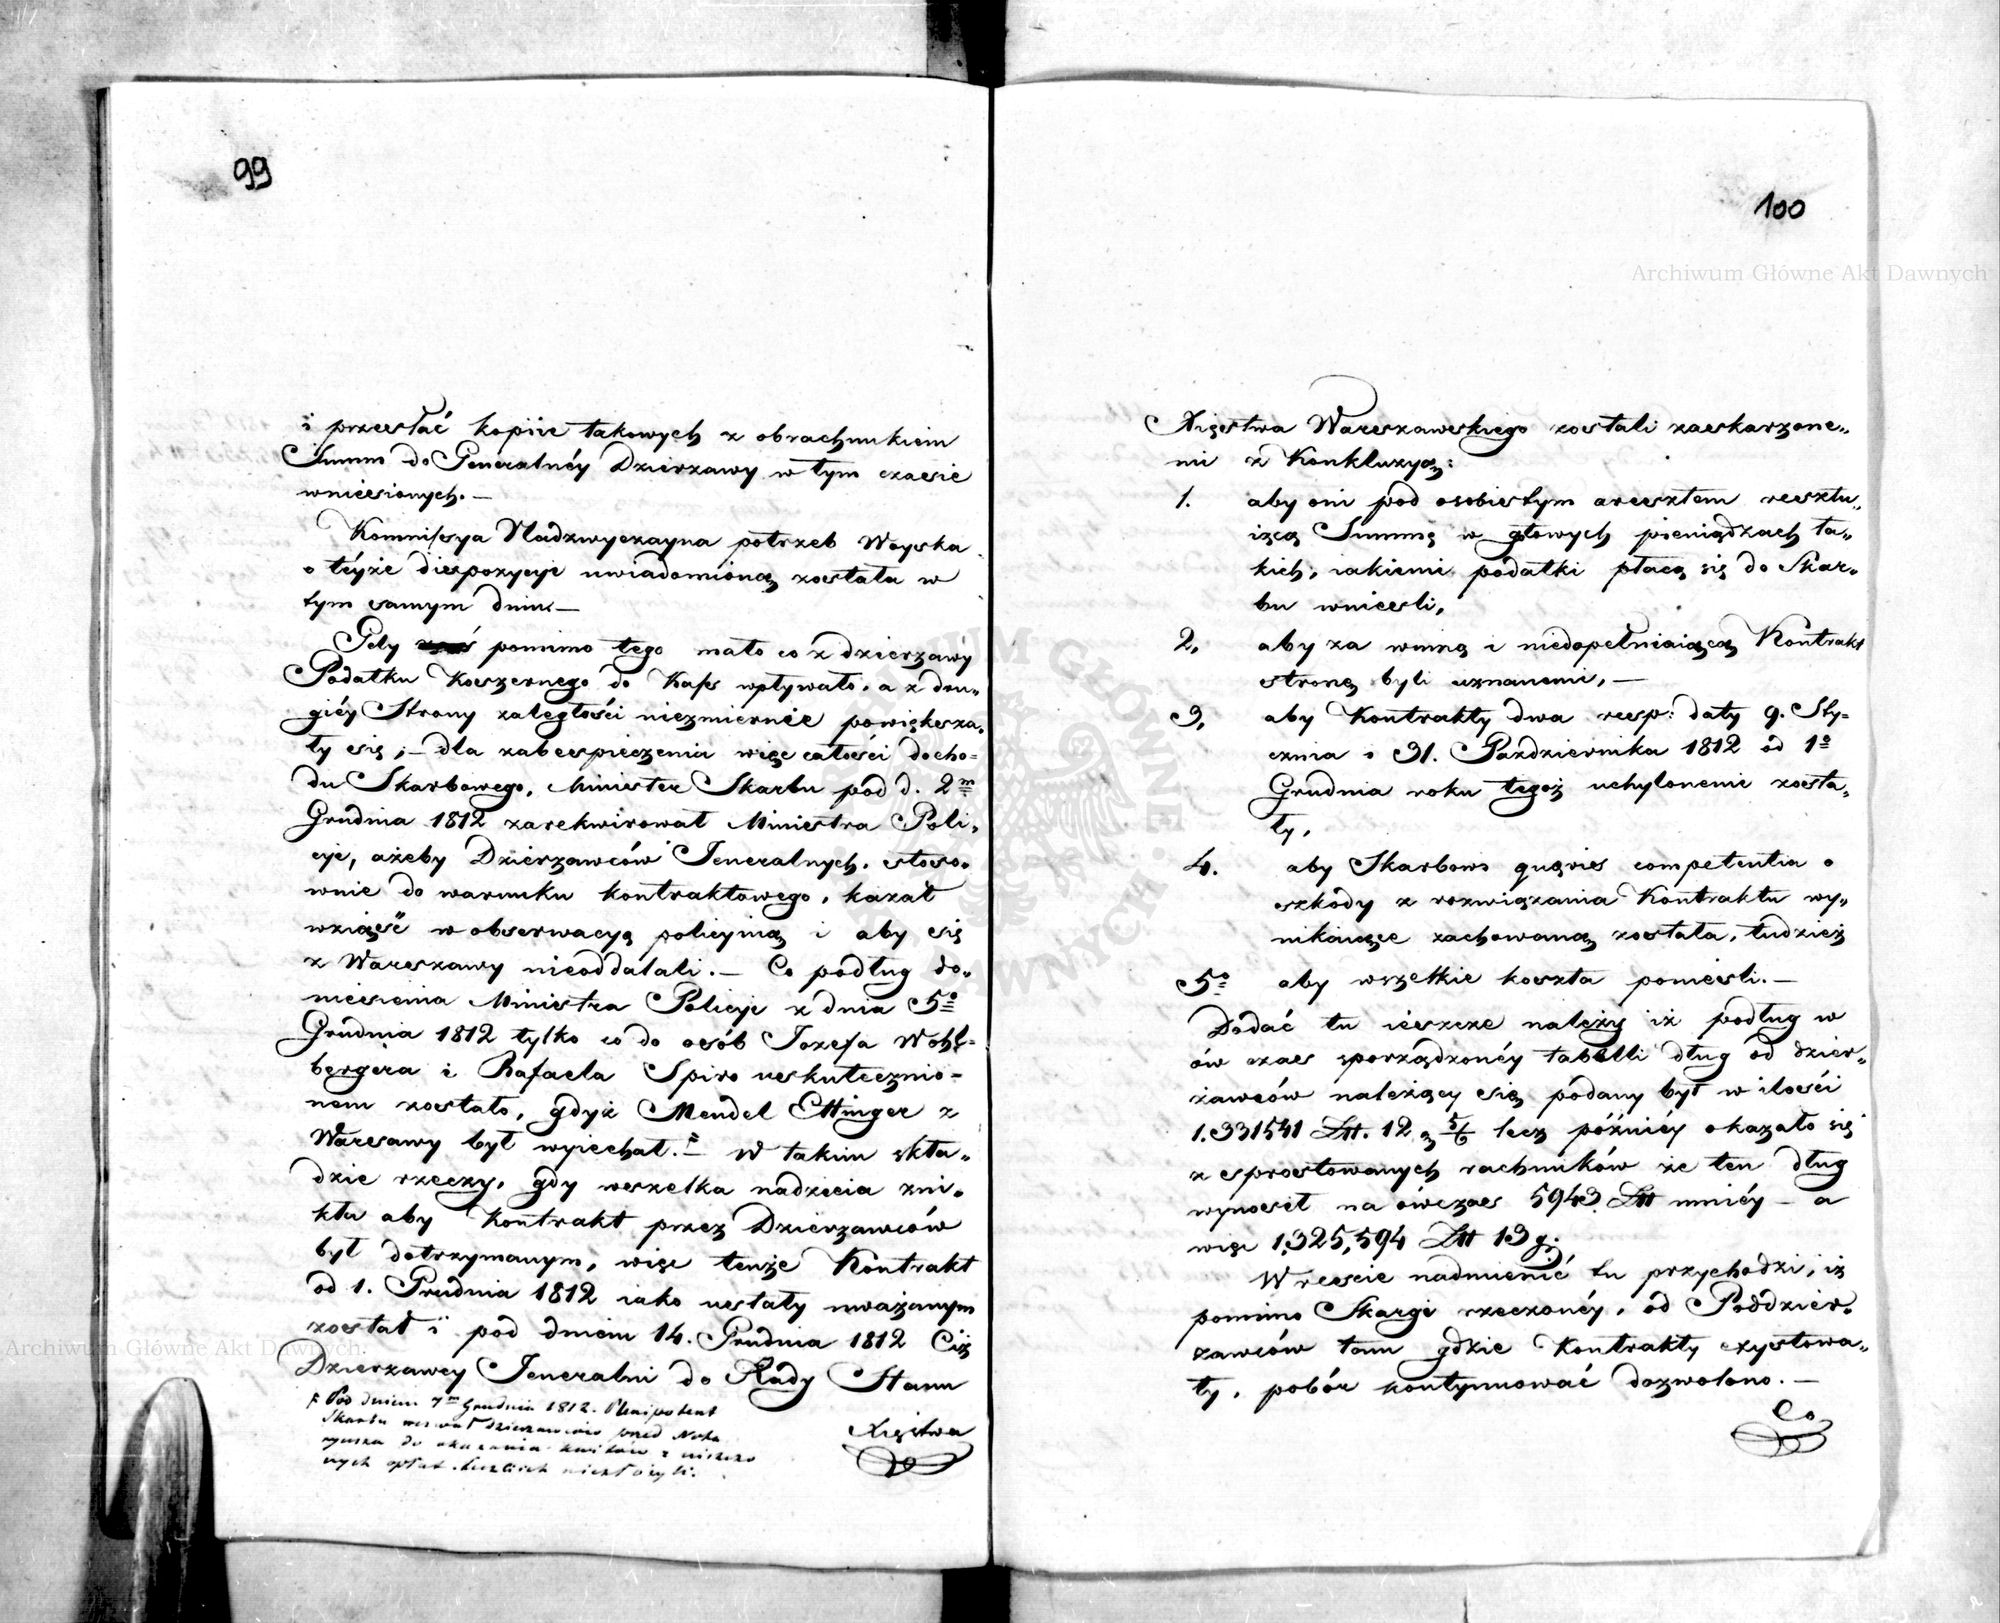 99
i przesłać kopiie takowych z obrachunkiem
Summ do Generalnéy Dzierzawy w tym czasie
wniesionych. —
Kommissya Nadzwyczayna potrzeb Woyska
o téyże dispozycyi uwiadomioną została w
tym samym dniu. —
Gdy pomimo tego mało co z dzierzawy
Podatku Koszernego do Kass wpływało, a z dru„
giéy Strony zaległości niezmiernie powiększa„
ły się, — dla zabespieczenia więc całości docho=
du Skarbowego, Minister Skarbu pod d. 2m
Grudnia 1812 zarekwirował Ministra Poli„
cyi, ażeby Dzierzawców Jeneralnych, stoso„
wnie do warunku kontraktowego, kazał
wziąść w obserwacyą policyiną i aby się
z Warszawy nieoddalali. — Co podług do„
niesienia Ministra Policyi z dnia 5o
Grudnia 1812 tylko co do osób Jozefa Wohl=
bergera i Rafaela Spiro uskutecznio=
nem zostało, gdyż Mendel Ettinger z
Warsawy był wyiechał. — W takim skła„
dzie rzeczy, gdy wszelka nadzieia zni„
kła aby Kontrakt przez Dzierzawców
był dotrzymanym, więc tenże Kontrakt
od 1. Grudnia 1812 iako ustały uważanym
został i pod dniem 14. Grudnia 1812 Ciż
Dzierzawcy Jeneralni do Rady Stanu
Pod dniem 7m Grudnia 1812. Plenipotent
Skarbu wezwał dzierzawców przed Nota
ryusza do okazania kwitów z uiszczo
nych opłat lecz ich niezłożyli.
Xięstwa
100
Archiwum Główne Akt Dawnych
Xięstwa Warszawskiego zostali zaskarzone„
mi z Konkluzyą:
1. aby oni pod osobistym aresztem resztu„
iącą Summę w gotowych pieniądzach ta„
kich, iakiemi podatki płacą się do Skar„
bu wnieśli,
2, aby za winną i niedopełniaiącą Kontrakt
stronę byli uznanemi, —
3, aby Kontrakty dwa resp: daty 9. Sty=
cznia i 31. Pazdziernika 1812 od 1o
Grudnia roku tegoż uchylonemi zosta„
ły,
4. aby Skarbowi quaevis competentia o
szkody z rozwiązania Kontraktu wy„
nikaiące zachowaną została, tudzież
5o aby wszelkie koszta ponieśli. —
Dodać tu ieszcze należy iż podług w
ów czas sporządzonéy tabelli dług od dzier„
żawców należący się podany był w ilości
1.331541 Złt. 12 g 5/6 lecz późniéy okazało się
z sprostowanych rachunków że ten dług
wynosił na ówczas 5943 Złt mniéy — a
więc 1,325,594 Złt 13 g:
W reście nadmienić tu przychodzi, iż
pomimo Skargi rzeczonéy, od Poddzier„
zawców tam gdzie Kontrakty exystowa„
ły, pobór kontynuować dozwolono. —
Co
Archiwum Główne Akt Dawnych
ARCHIWUM GŁÓWNE AKT DAWNYCH